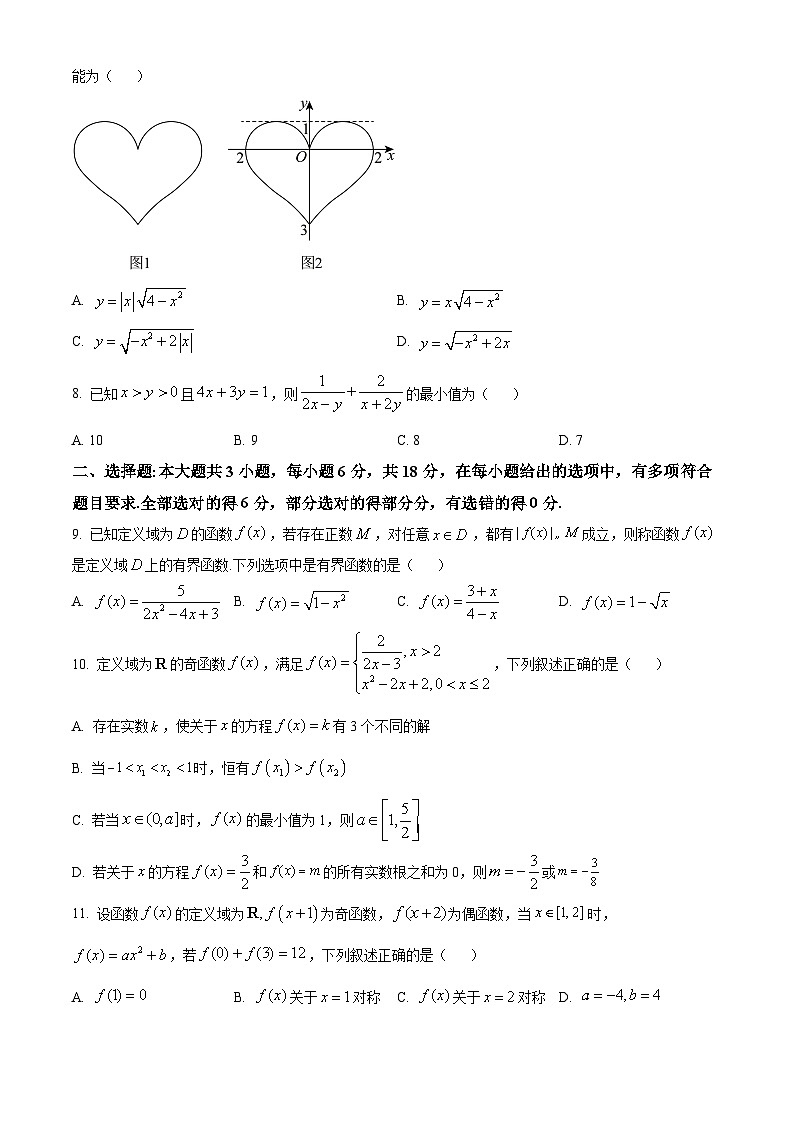 能为（ ）
y
1
2 O 2 x
3
图1 图2
A. y=|x|√(4−x²) B. y=x√(4−x²)
C. y=√(−x²+2|x|) D. y=√(−x²+2x)
8. 已知 x>y>0 且 4x+3y=1，则 1/(2x−y)+2/(x+2y) 的最小值为（ ）
A. 10 B. 9 C. 8 D. 7
二、选择题：本大题共 3 小题，每小题 6 分，共 18 分，在每小题给出的选项中，有多项符合
题目要求.全部选对的得 6 分，部分选对的得部分分，有选错的得 0 分.
9. 已知定义域为 D 的函数 f(x)，若存在正数 M，对任意 x∈D，都有 |f(x)|„M 成立，则称函数 f(x)
是定义域 D 上的有界函数.下列选项中是有界函数的是（ ）
A. f(x)=5/(2x²−4x+3) B. f(x)=√(1−x²) C. f(x)=(3+x)/(4−x) D. f(x)=1−√x
10. 定义域为 R 的奇函数 f(x)，满足 f(x)={2/(2x−3), x>2; x²−2x+2, 0<x≤2，下列叙述正确的是（ ）
A. 存在实数 k，使关于 x 的方程 f(x)=k 有 3 个不同的解
B. 当 −1<x₁<x₂<1 时，恒有 f(x₁)>f(x₂)
C. 若当 x∈(0,a] 时，f(x) 的最小值为 1，则 a∈[1,5/2]
D. 若关于 x 的方程 f(x)=3/2 和 f(x)=m 的所有实数根之和为 0，则 m=−3/2 或 m=−3/8
11. 设函数 f(x) 的定义域为 R, f(x+1) 为奇函数，f(x+2) 为偶函数，当 x∈[1,2] 时，
f(x)=ax²+b，若 f(0)+f(3)=12，下列叙述正确的是（ ）
A. f(1)=0 B. f(x) 关于 x=1 对称 C. f(x) 关于 x=2 对称 D. a=−4,b=4